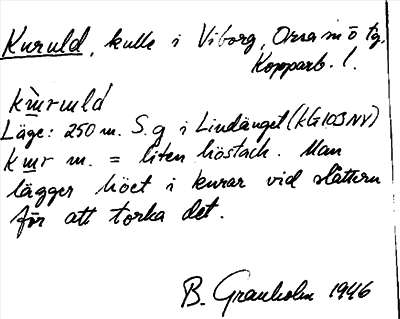 Kuruld, kulle i Viborg, Orsa m o tg,
Kopparb. l.
kɯ̀ruld
Läge: 250 m. S. g i Lindänget (kG103NV)
kɯr m. = liten höstack. Man
lägger höet i kurar vid slåttern
för att torka det.
B. Granholm 1946